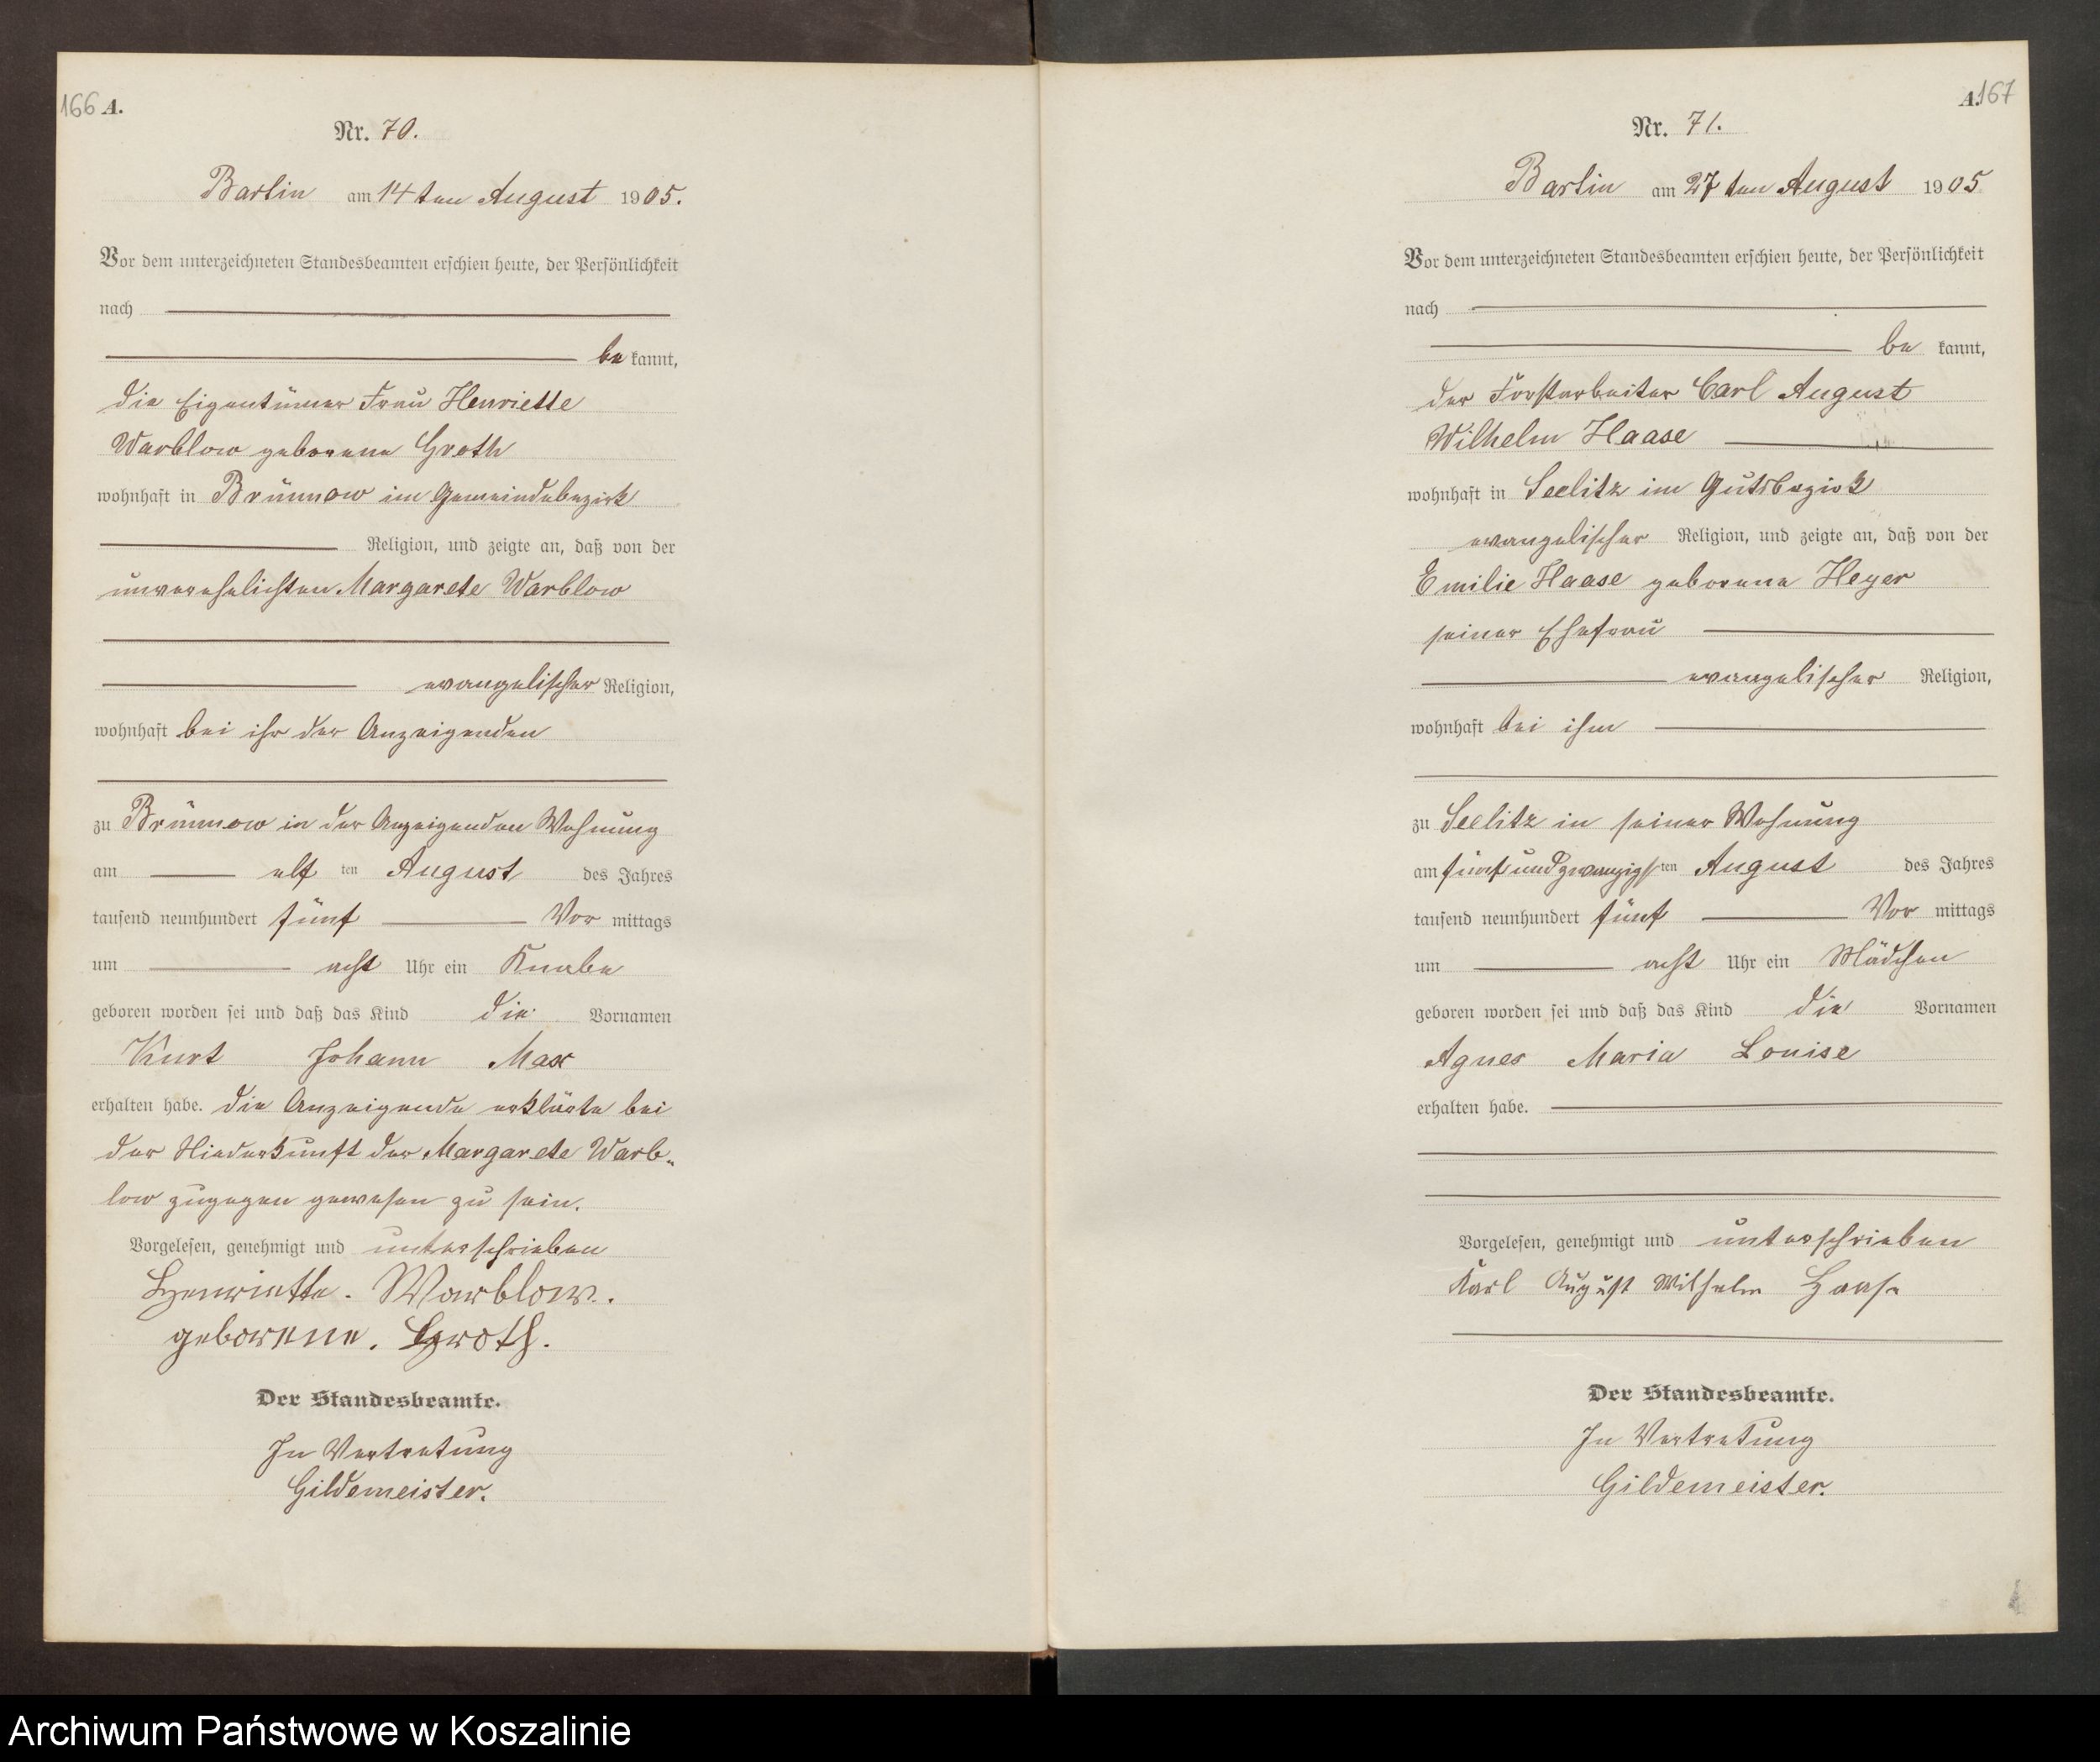 166 A.
Nr. 70.
Bartin am 14ten August 1905.
Vor dem unterzeichneten Standesbeamten erschien heute, der Persönlichkeit
nach
be kannt,
die Eigentümer Frau Henriette
Warblow geborene Groth
wohnhaft in Brünnow im Gemeindebezirk
Religion, und zeigte an, daß von der
unverehelichten Margarete Warblow
evangelischer Religion,
wohnhaft bei ihr der Anzeigenden
zu Brünnow in der Anzeigenden Wohnung
am elf ten August des Jahres
tausend neunhundert fünf Vor mittags
um acht Uhr ein Knabe
geboren worden sei und daß das Kind die Vornamen
Kurt Johann Max
erhalten habe. Die Anzeigende erklärte bei
der Niederkunft der Margarete Warb-
low zugegen gewesen zu sein.
Vorgelesen, genehmigt und unterschrieben
Henriette. Warblow.
geborene. Groth.
Der Standesbeamte.
In Vertretung
Gildemeister.
A. 167
Nr. 71.
Bartin am 27ten August 1905
Vor dem unterzeichneten Standesbeamten erschien heute, der Persönlichkeit
nach
be kannt,
der Forstarbeiter Carl August
Wilhelm Haase
wohnhaft in Seelitz im Gutsbezirk
evangelischer Religion, und zeigte an, daß von der
Emilie Haase geborene Heyer
seiner Ehefrau
evangelischer Religion,
wohnhaft bei ihm
zu Seelitz in seiner Wohnung
am fünfundzwanzigsten August des Jahres
tausend neunhundert fünf Vor mittags
um acht Uhr ein Mädchen
geboren worden sei und daß das Kind die Vornamen
Agnes Maria Louise
erhalten habe.
Vorgelesen, genehmigt und unterschrieben
Karl August Wilhelm Haase
Der Standesbeamte.
In Vertretung
Gildemeister.
Archiwum Państwowe w Koszalinie